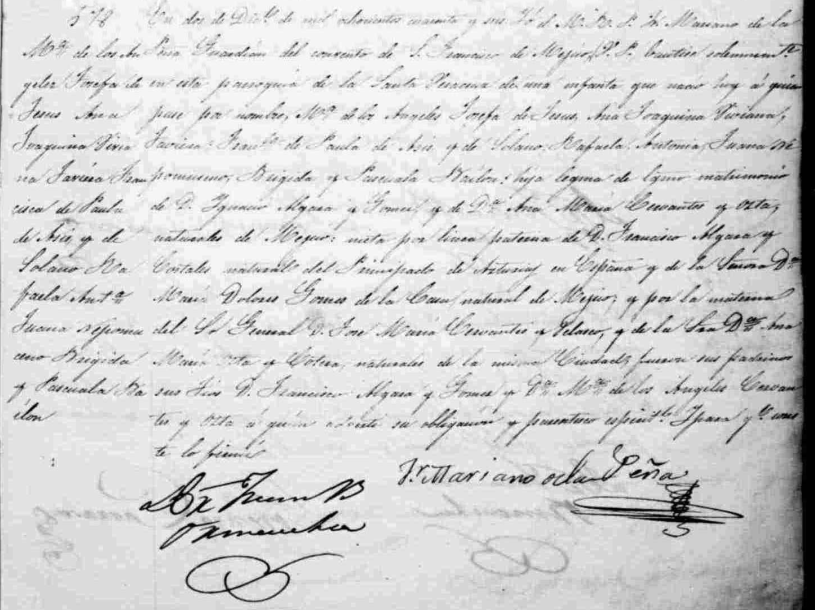 578
Mª de los An
geles Josefa de
Jesus Ana
Joaquina Vivia
na Javiera Fran
cisca de Paula
de Asis y de
Solano Ra
faela Antª
Juana Nepomu
ceno Brigida
y Pascuala Ba
ilon
En dos de Dicᵉ de mil ochocientos cuarenta y seis Yó el M. R. P. Fr. Mariano de la
Peña Guardián del convento de S. Francisco de Mejico, bautice solemnemᵗᵉ
en esta parroquia de la Santa Veracruz de una infanta que nacio hoy á quien
puse por nombre, Mª de los Angeles Josefa de Jesus, Ana Joaquina Viviana,
Javiera, Franᶜᵃ de Paula de Asis y de Solano, Rafaela, Antonia, Juana Ne
pomuceno, Brigida y Pascuala Bailon: hija legma de lgmo matrimonio
de D. Ygnacio Algara y Gomez, y de Dª Ana María Cervantes y Ozta,
naturales de Mejico: nieta por linea paterna de D. Francisco Algara y
natural del Principado de Asturias en España y de la Señora Dª
María Dolores Gomez de la Casa natural de Mejico, y por la materna
del Sr General D. Jose María Cervantes y Velasco, y de la Sra Dª Ana
María Ozta y Cotera, naturales de la misma Ciudad, fueron sus padrinos
sus tios D. Francisco Algara y Gomez y Dª Mª de los Angeles Cervan
tes y Ozta á quien advertí su obligacion y parentesco espiritˡ. Y para qᵉ cons
te lo firmé
Fr. Mariano de la Peña